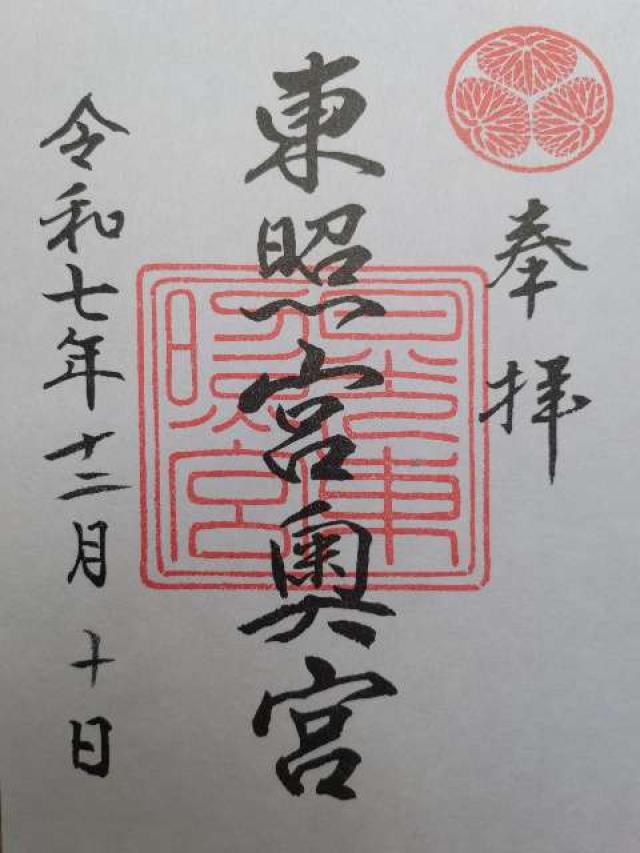 奉拝
東照宮奥宮
令和七年十二月十日